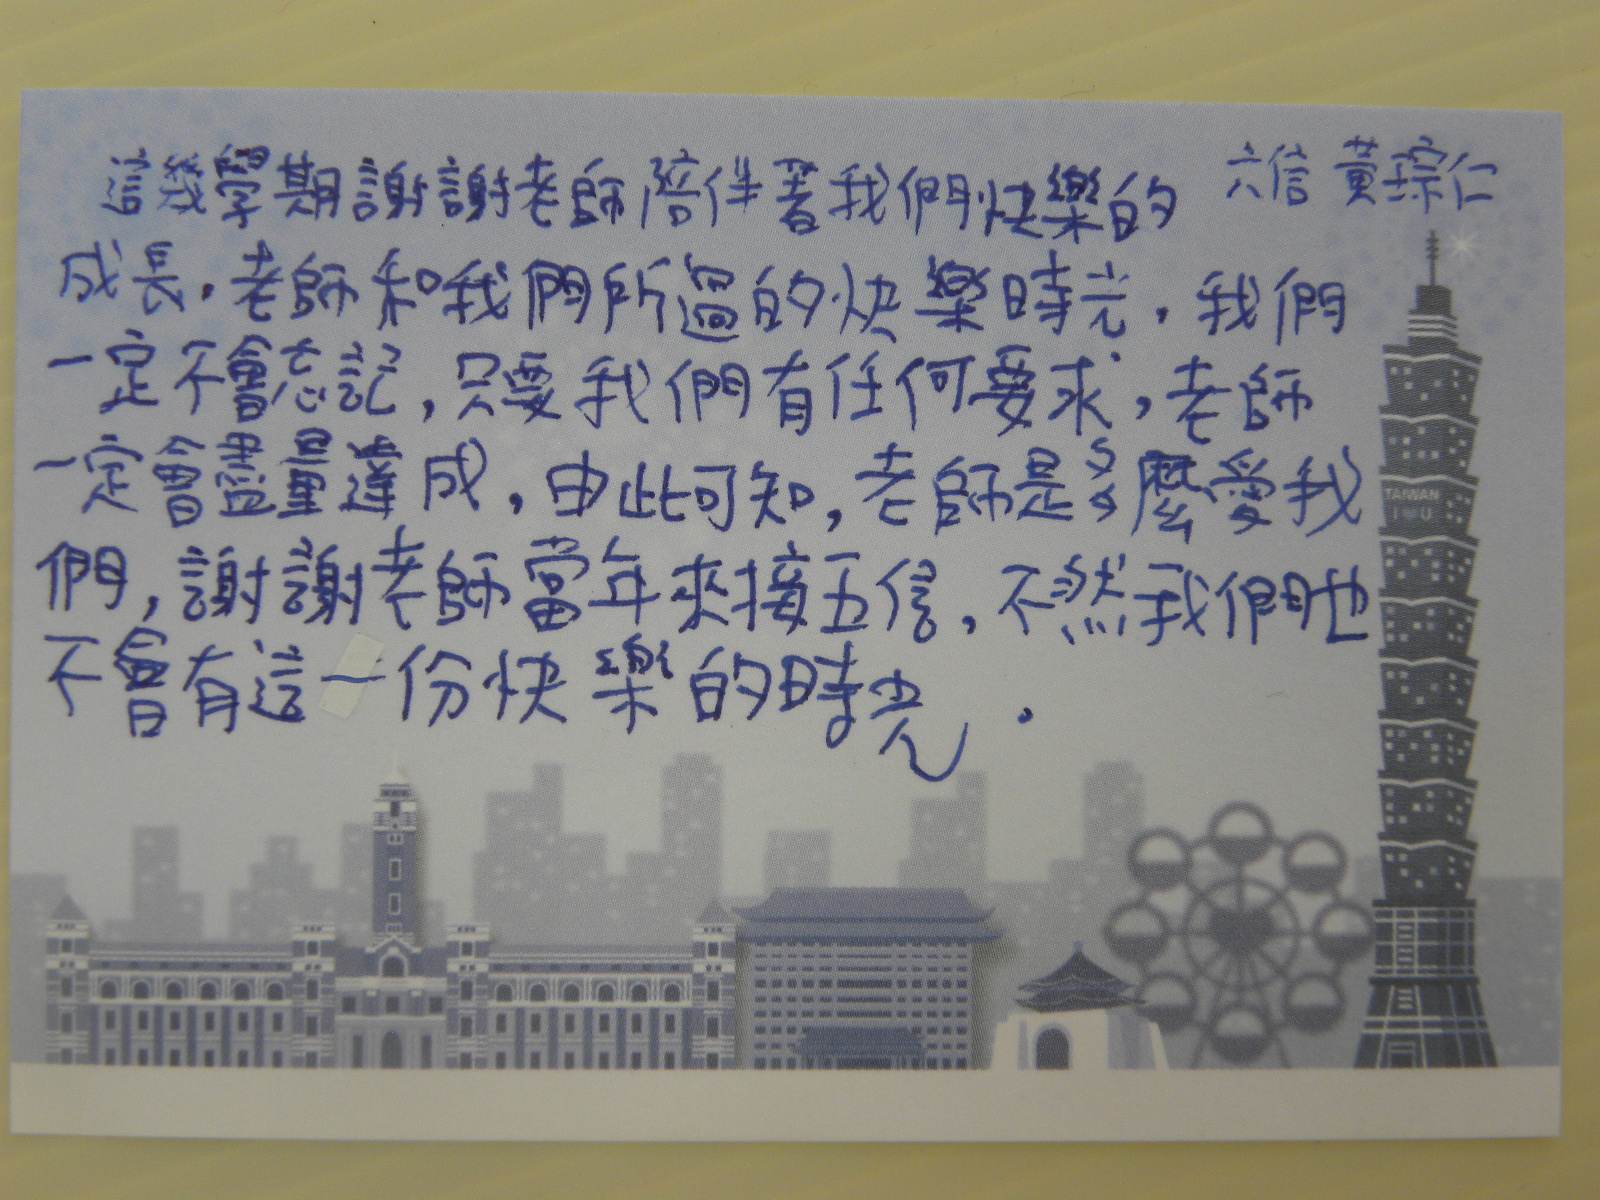 這幾學期謝謝老師陪伴著我們快樂的 六信 黃琮仁
成長.老師和我們所過的快樂時光,我們
一定不會忘記,只要我們有任何要求,老師
一定會盡量達成,由此可知,老師是多麼愛我
們,謝謝老師當年來接五信,不然我們也
不會有這一份快樂的時光.
TAIWAN
I ♥ U